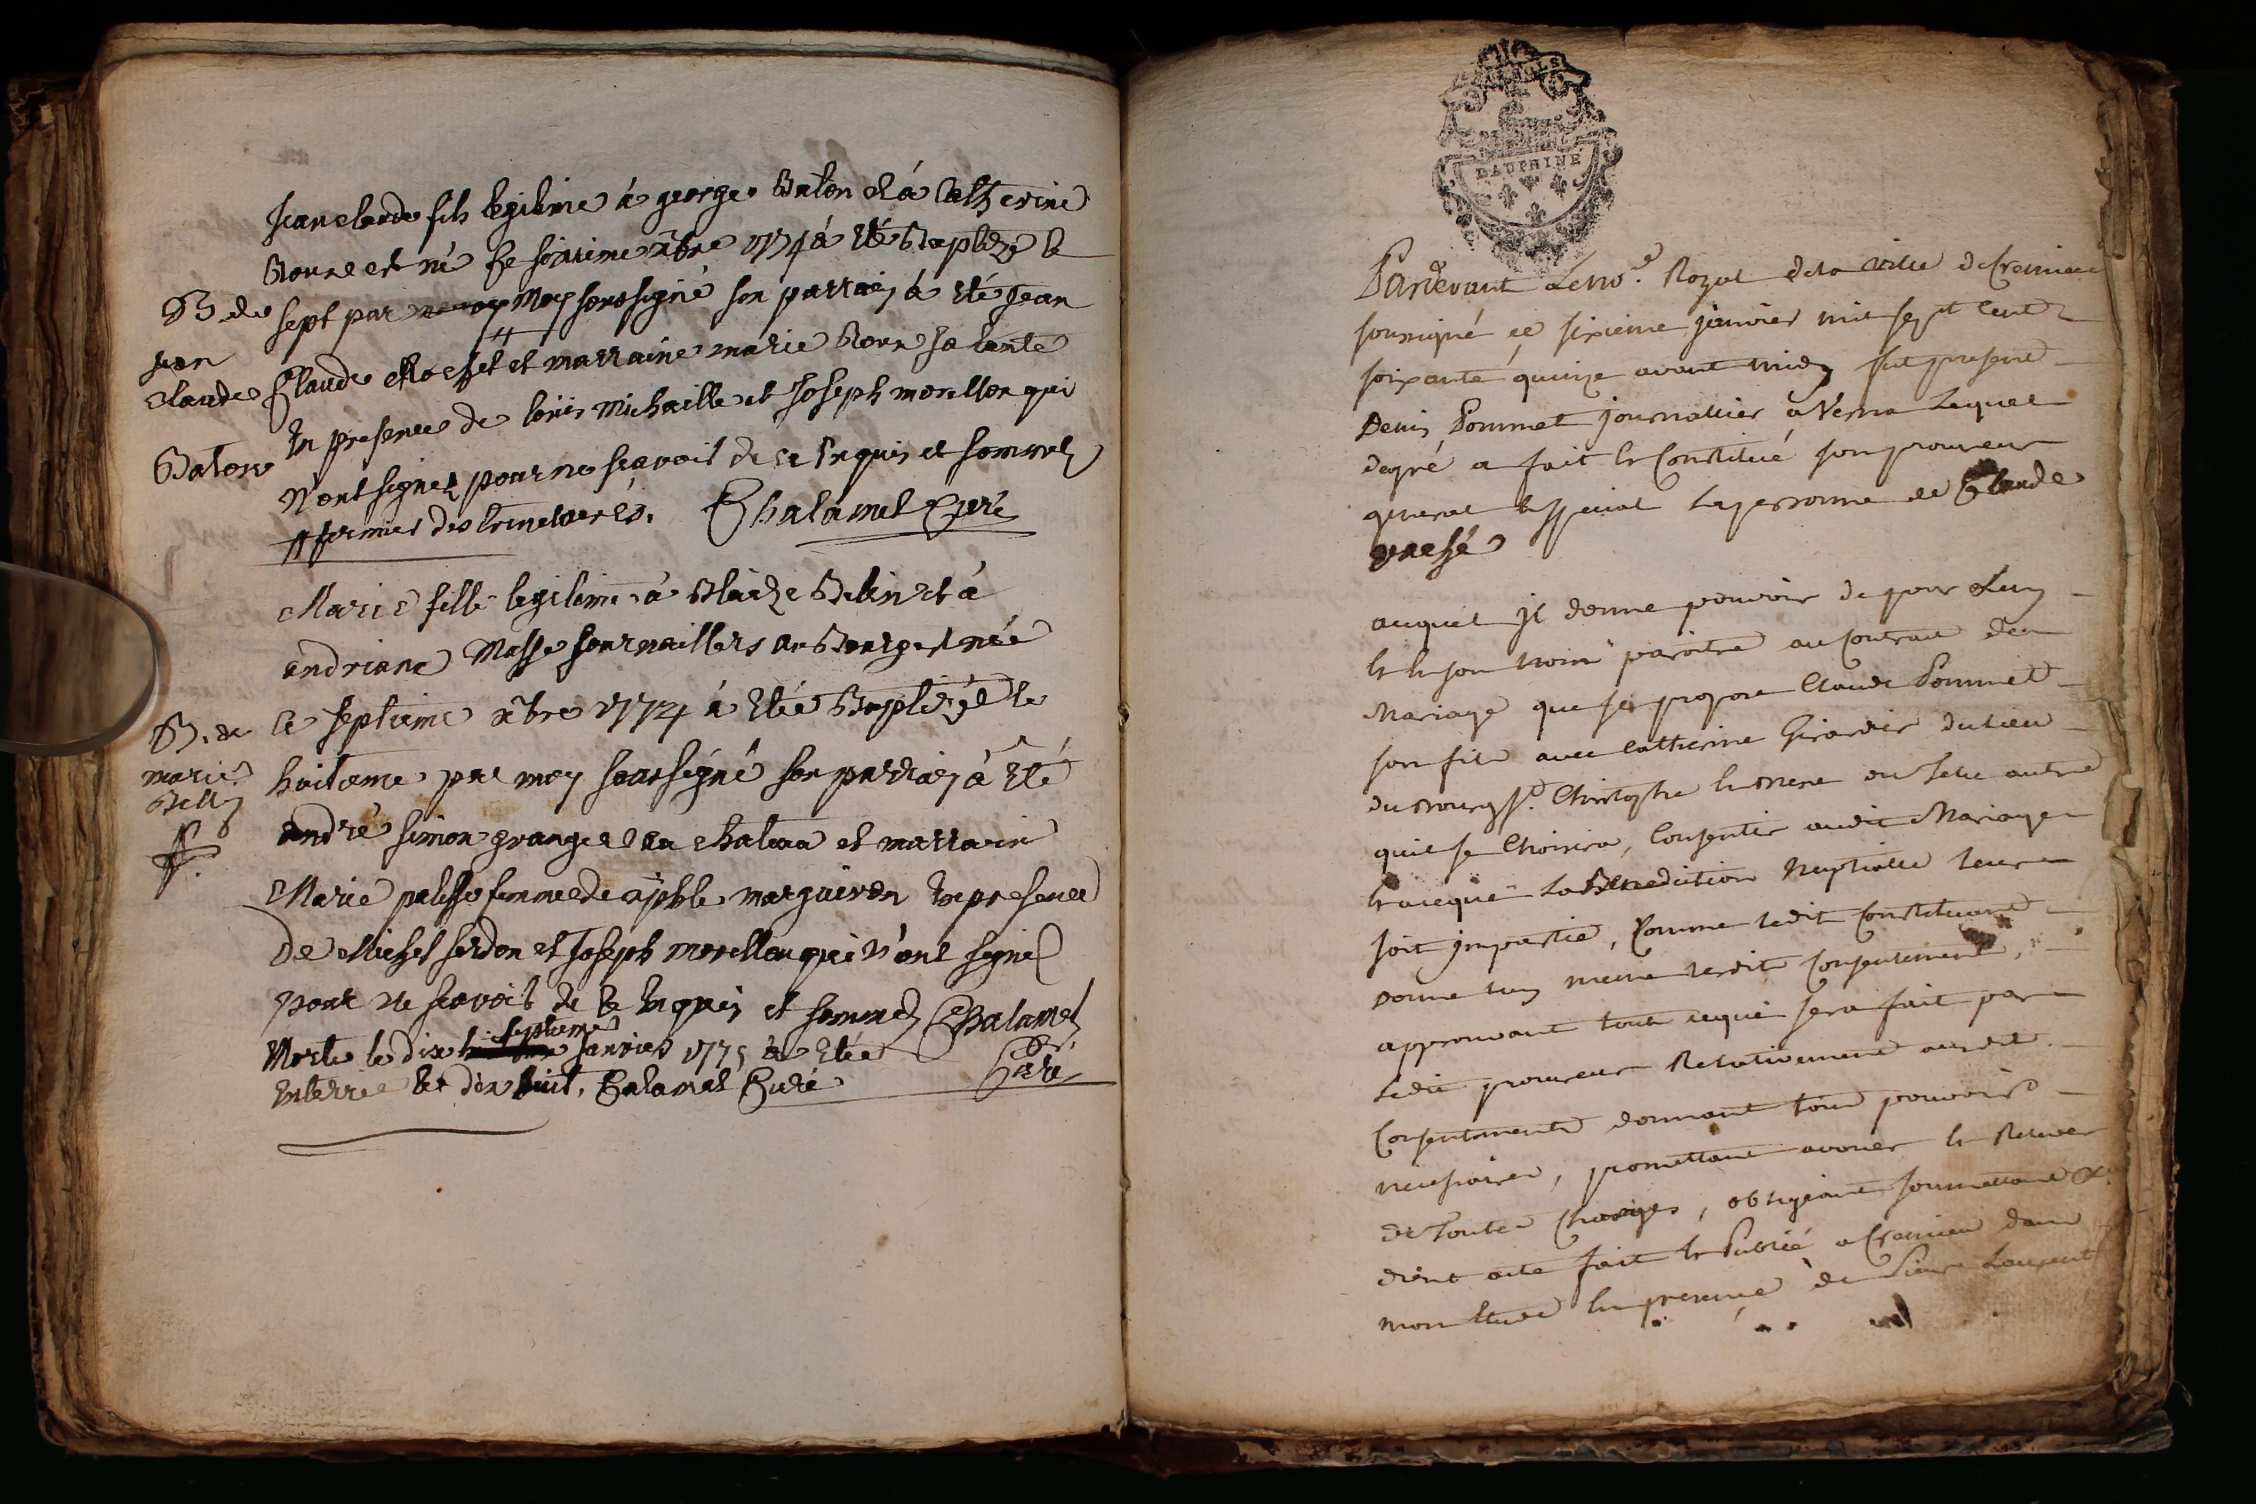 B. de
jean
claude
Baton
jean claude fils legitime à george Baton et à Catherine
Roux est né le sixieme xbre 1774 a eté Baptizé le
sept par moy soussigné son parrain à eté Jean
Claude et marraine marie Roux sa tante
En presence de louis Michaille et Joseph morellon qui
n'ont signé pour ne scavoir de ce Enquis et sommés
Chalamel Curé
B. de
marie
Bellin
Marie fille legitime à Blaize Belin et à
andriane Masse journailliers au Bourg est née
le septieme xbre 1774 a Etée Baptizée le
huitieme par moy soussigné son parrain à Eté
andré simon granger et marraine
Marie femme de En presence
De Michel serdon et Joseph morellon qui n'ont signé
pour ne scavoir de ce Enquis et sommés Chalamel
Curé
septieme
Morte le dix janvier 1775 a Etée
Enterrée le dix huit. Chalamel Curé
DAUPHINE
Pardevant Le no.re Royal de la ville de Cremieu
soussigné ce sixieme janvier mil sept cent
soixante quinze avant midy fut present
Denis Pommet journallier a Verna Lequel
degré a fait et Constitué son procureur
general et special La personne de Claude
auquel jl donne pouvoir de pour Luy
et en son nom paroitre au Contrat de
Mariage que se propose Claude Pommet
son fils avec Catherine Girardier du lieu
du Bourg St. Christophe en Bresse ou telle autre
quil se Choisira, Consentir audit Mariage
et aceque La Benediction Nuptialle leur
soit jmpartie, Comme ledit Constituant
Donne luy meme sondit Consentement,
approuvant tout cequi sera fait par
Ledit procureur Relativement audit
Consentement donnant tous pouvoirs
necessaires, promettant avouer et Relever
de Toutes Charges, obligeant soumettant &.
dient acte fait et Publié a Cremieu dans
mon Etude En presence de Pierre Laurent